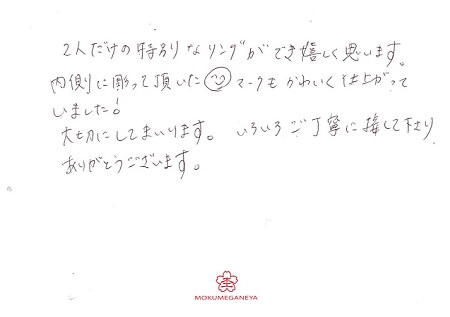 2人だけの特別なリングができ嬉しく思います。
内側に彫って頂いた☺マークもかわいく仕上がって
いました!
大切にしてまいります。 いろいろご丁寧に接して下さり
ありがとうございます。
MOKUMEGANEYA